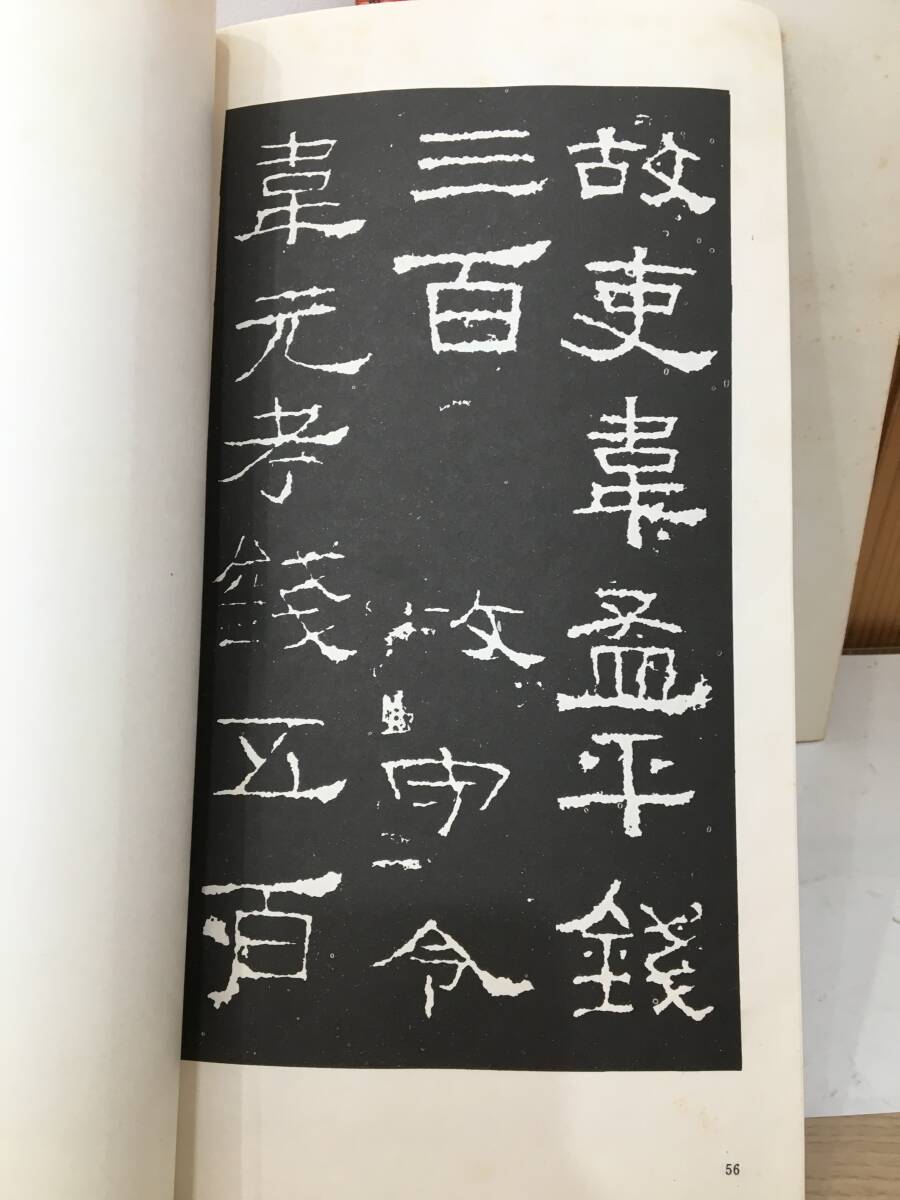 故吏韋孟平錢
三百 故守令
韋元考錢五百
56